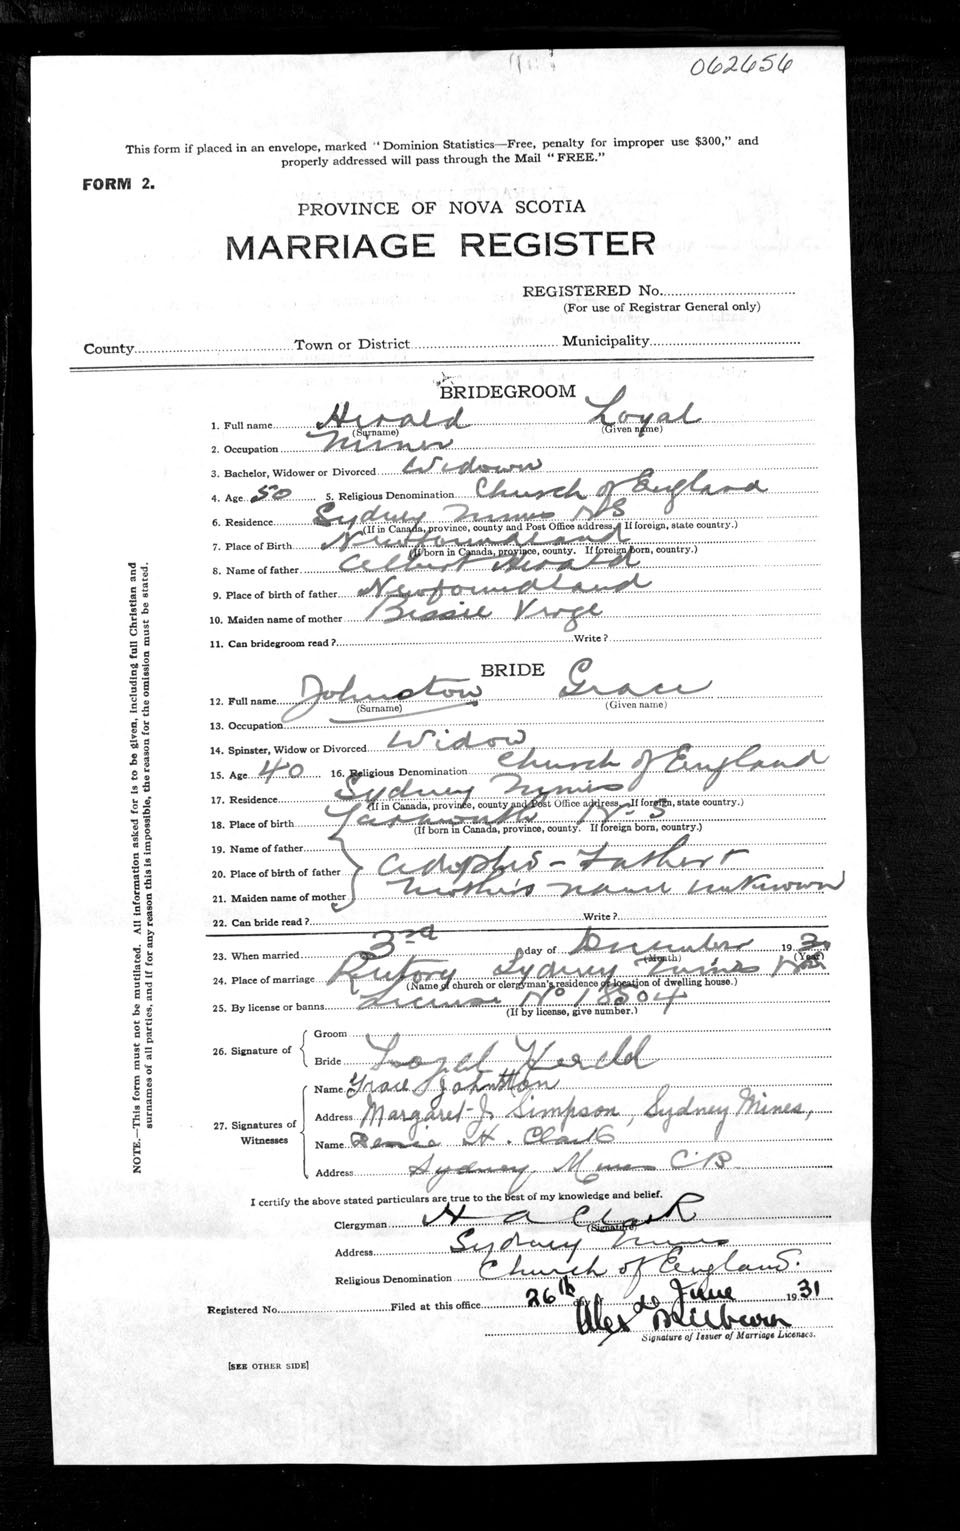 062656
This form if placed in an envelope, marked "Dominion Statistics—Free, penalty for improper use $300," and
properly addressed will pass through the Mail "FREE."
FORM 2.
PROVINCE OF NOVA SCOTIA
MARRIAGE REGISTER
REGISTERED No.
(For use of Registrar General only)
County Town or District Municipality
BRIDEGROOM
1. Full name Herald Loyal
(Surname) (Given name)
2. Occupation Miner
3. Bachelor, Widower or Divorced Widower
4. Age 50 5. Religious Denomination Church of England
6. Residence Sydney Mines N S
(If in Canada, province, county and Post Office address. If foreign, state country.)
7. Place of Birth Newfoundland
(If born in Canada, province, county. If foreign born, country.)
8. Name of father Albert Herald
9. Place of birth of father Newfoundland
10. Maiden name of mother Bessie
11. Can bridegroom read? Write?
BRIDE
12. Full name Johnston Grace
(Surname) (Given name)
13. Occupation
14. Spinster, Widow or Divorced Widow
15. Age 40 16. Religious Denomination Church of England
17. Residence Sydney Mines
(If in Canada, province, county and Post Office address. If foreign, state country.)
18. Place of birth Yarmouth N-S
(If born in Canada, province, county. If foreign born, country.)
19. Name of father
20. Place of birth of father Father +
21. Maiden name of mother Mother's name unknown
22. Can bride read? Write?
23. When married 3rd day of December 1930
(Month) (Year)
24. Place of marriage Rectory Sydney Mines
(Name of church or clergyman's residence or location of dwelling house.)
25. By license or banns License No 18504
(If by license, give number.)
26. Signature of Groom
Bride Loyal Herald
27. Signatures of Witnesses
Name Grace Johnston
Address Margaret J. Simpson, Sydney Mines,
Name H. Clark
Address Sydney Mines C.B.
I certify the above stated particulars are true to the best of my knowledge and belief.
Clergyman H A Clark
(Signature)
Address Sydney Mines
Religious Denomination Church of England.
Registered No. Filed at this office 26th June 1931
Alex
Signature of Issuer of Marriage Licenses.
[SEE OTHER SIDE]
NOTE.—This form must not be mutilated. All information asked for is to be given, including full Christian and
surnames of all parties, and if for any reason this is impossible, the reason for the omission must be stated.